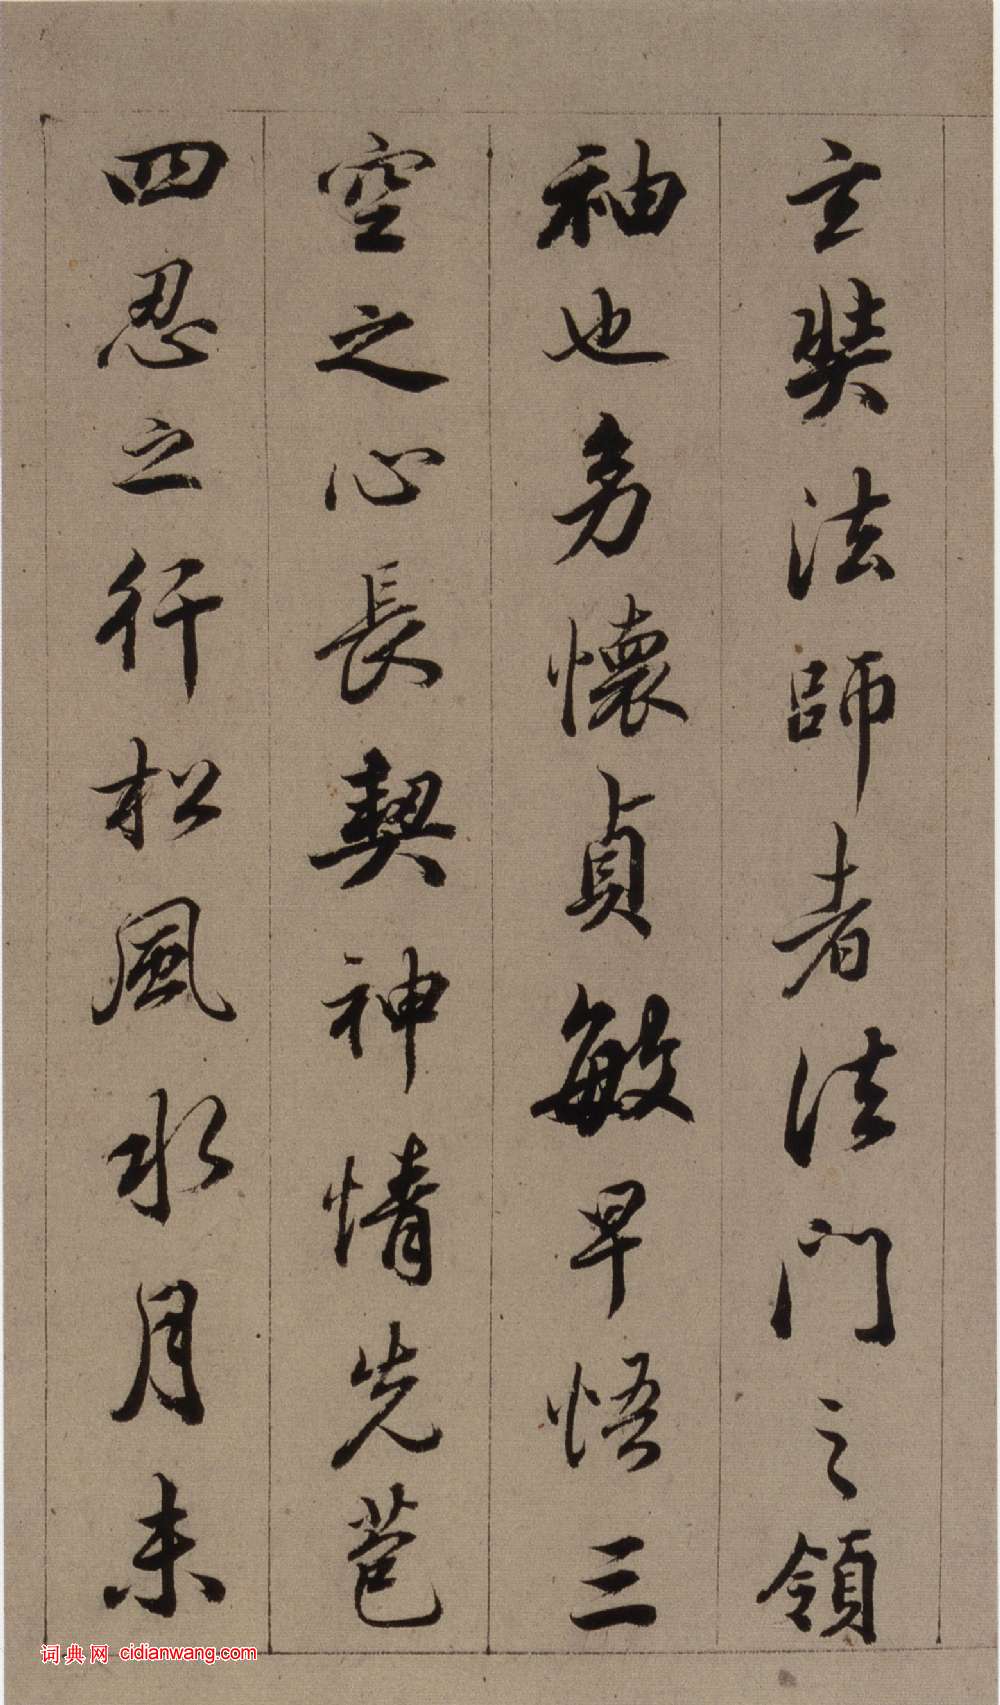 玄奘法師者法門之領
袖也幼懷貞敏早悟三
空之心長契神情先苞
四忍之行松風水月未
词典网 cidianwang.com